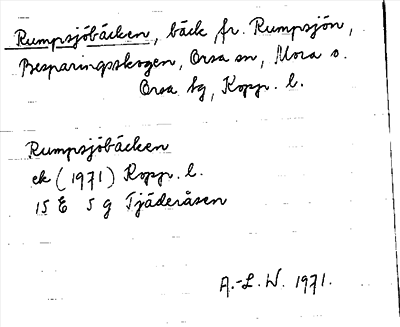 Rumpsjöbäcken, bäck fr. Rumpsjön,
Besparingsskogen, Orsa sn, Mora o.
Orsa tg, Kopp. l.
Rumpsjöbäcken
ek (1971) Kopp. l.
15 E 5 g Tjäderåsen
A.-L. W. 1971.